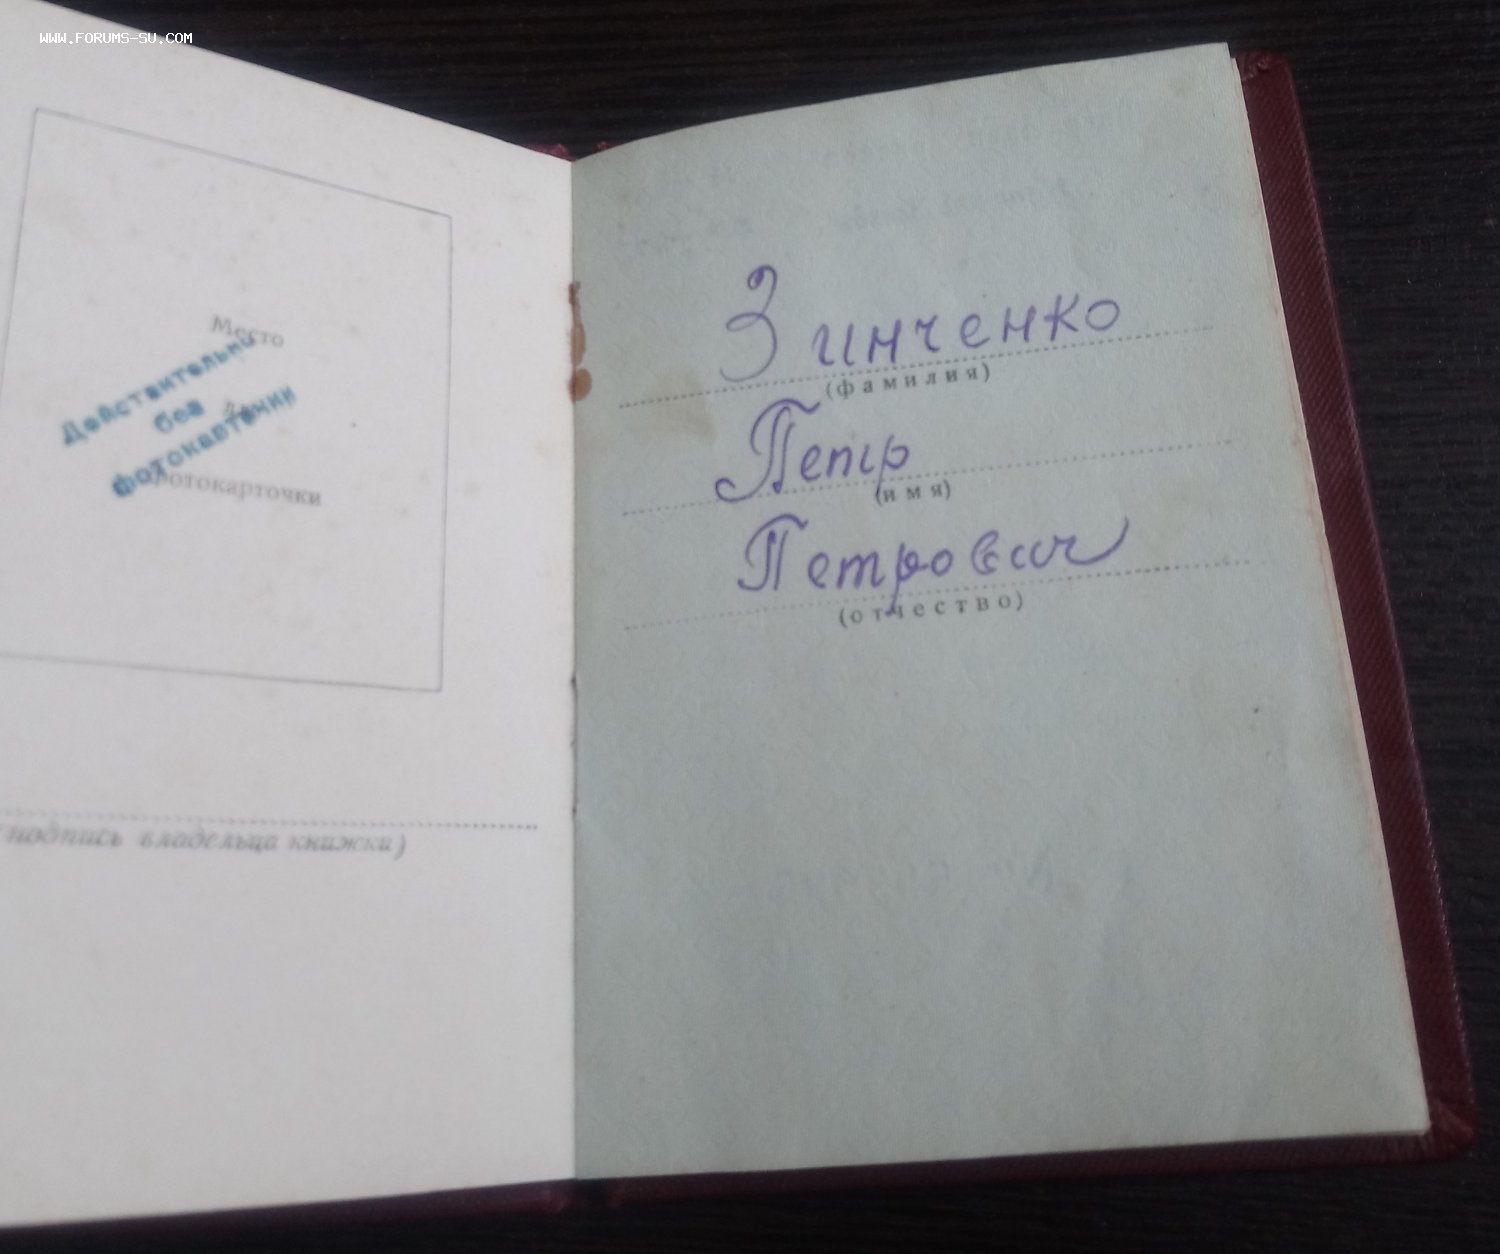 WWW.FORUMS-SU.COM
Место
для
фотокарточки
Действительно
без
фотокарточки
(подпись владельца книжки)
Зинченко
(фамилия)
Петр
(имя)
Петрович
(отчество)